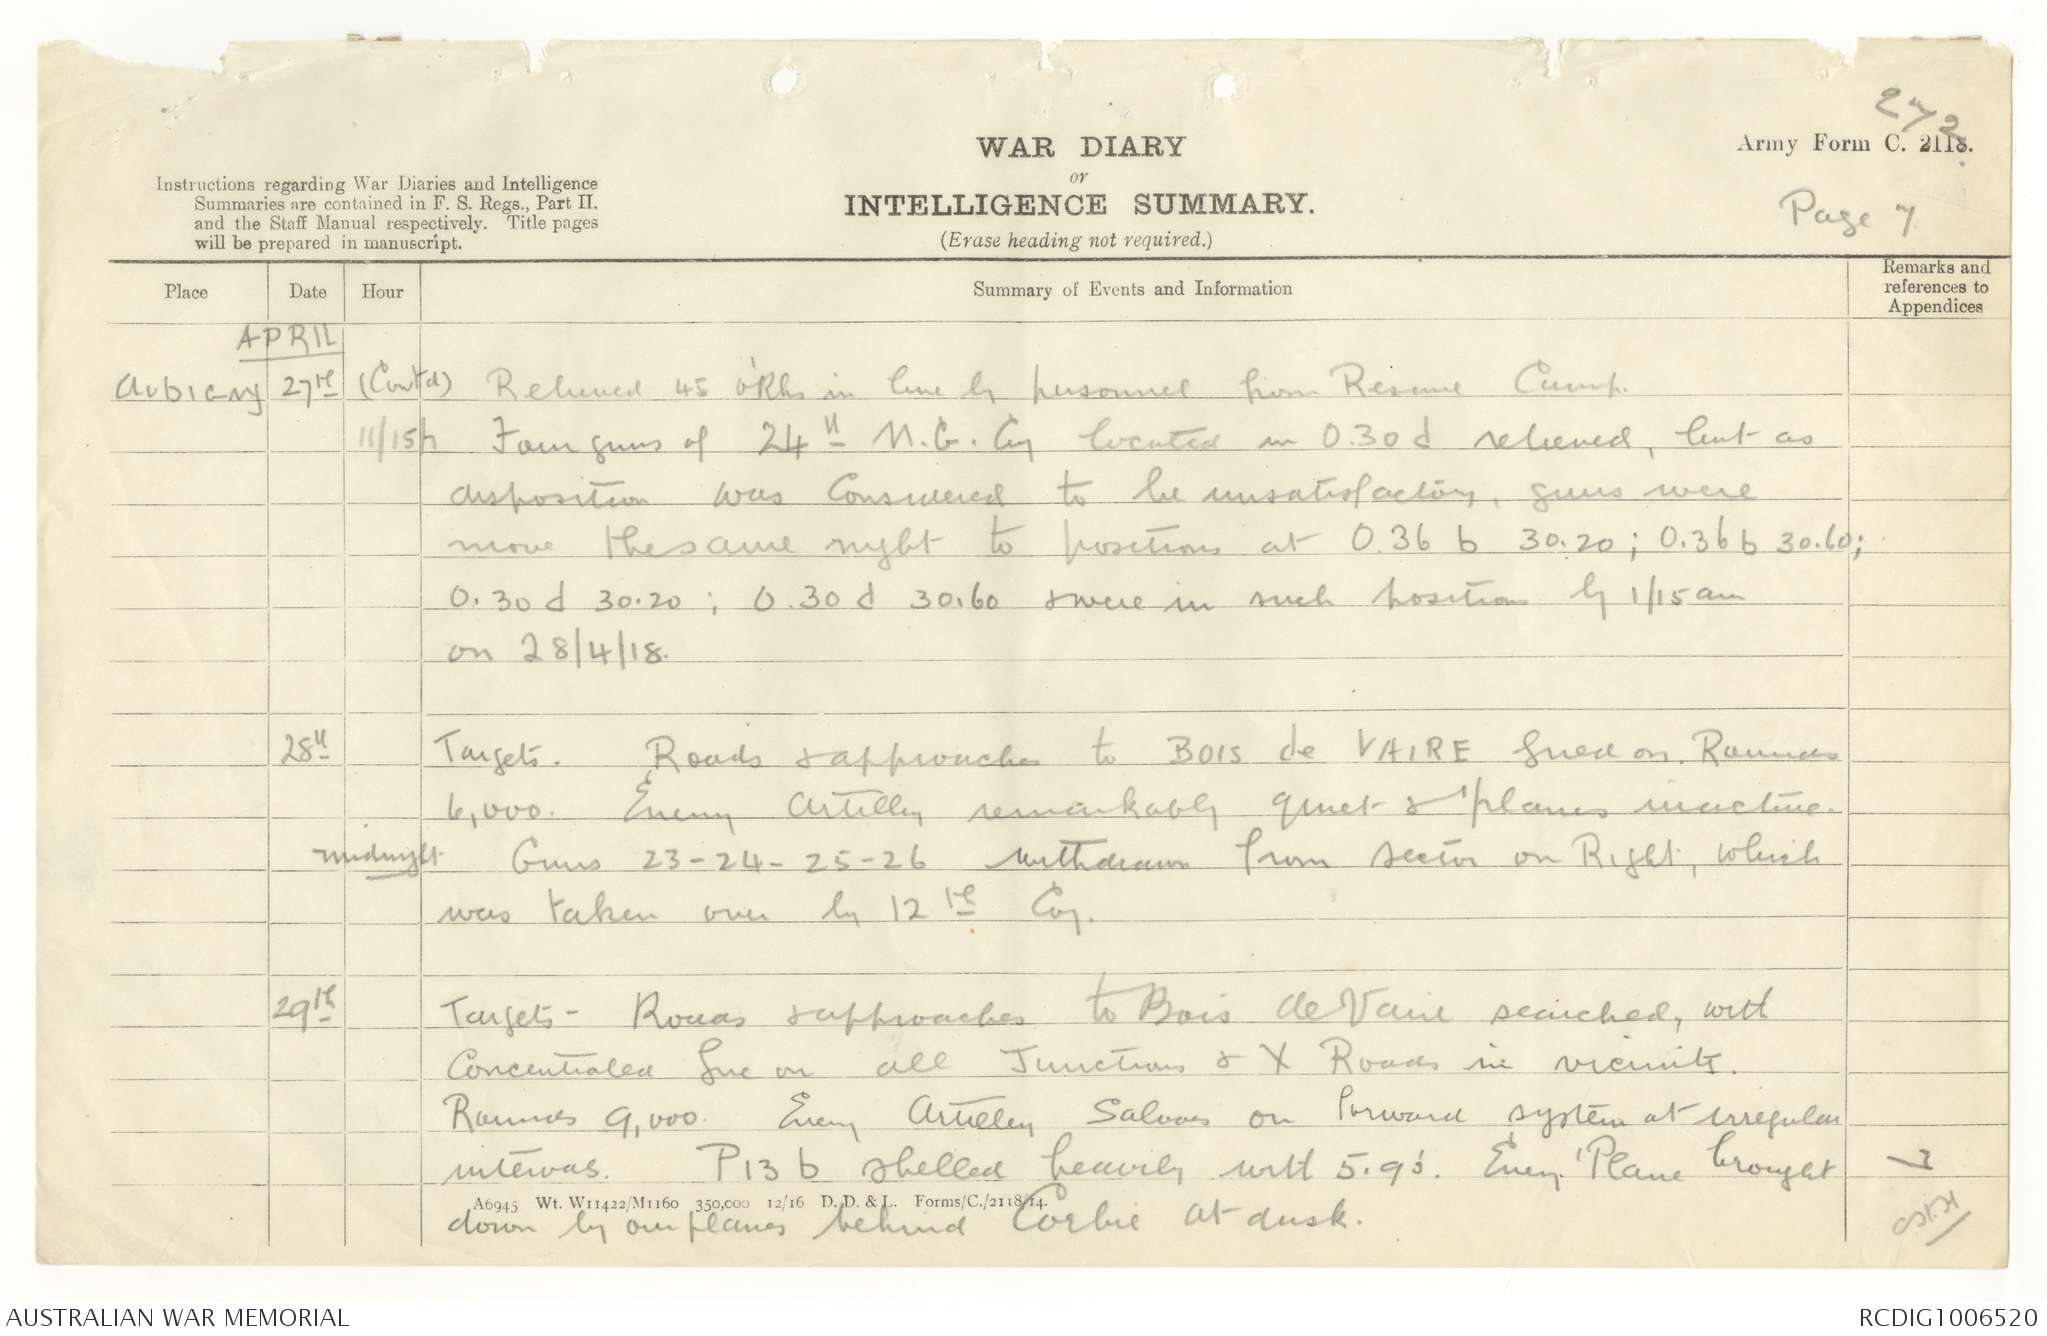 272
WAR DIARY
or
INTELLIGENCE SUMMARY.
(Erase heading not required.)
Army Form C. 2118.
Page 7
Instructions regarding War Diaries and Intelligence
Summaries are contained in F. S. Regs., Part II.
and the Staff Manual respectively. Title pages
will be prepared in manuscript.
Place Date Hour Summary of Events and Information Remarks and references to Appendices
APRIL
Aubigny 27th (Cont'd) Relieved 45 O'Rks in line by personnel from Camp.
11/15p Four guns of 24th M.G. Coy located in O.30d relieved, but as
disposition was Considered to be unsatisfactory, guns were
move the same night to positions at O.36 b 30.20; O.36 b 30.60;
O.30 d 30.20; O.30 d 30.60 & were in such positions by 1/15 am
on 28/4/18.
28th Targets. Roads & approaches to BOIS de VAIRE fired on. Rounds
6,000. Enemy Artillery remarkably quiet & 'planes inactive.
midnight Guns 23-24-25-26 withdrawn from sector on Right, which
was taken over by 12th Coy.
29th Targets - Roads & approaches to Bois de Vaire searched, with
Concentrated fire on all Junctions & X Roads in vicinity.
Rounds 9,000. Enemy Artillery Salvoes on forward system at irregular
intervals. P13 b shelled heavily with 5.9's. Enemy 'Plane brought
A6945 Wt. W11422/M1160 350,000 12/16 D. D. & L. Forms/C./2118/14.
down by our planes behind Corbie at dusk.
AUSTRALIAN WAR MEMORIAL
RCDIG1006520